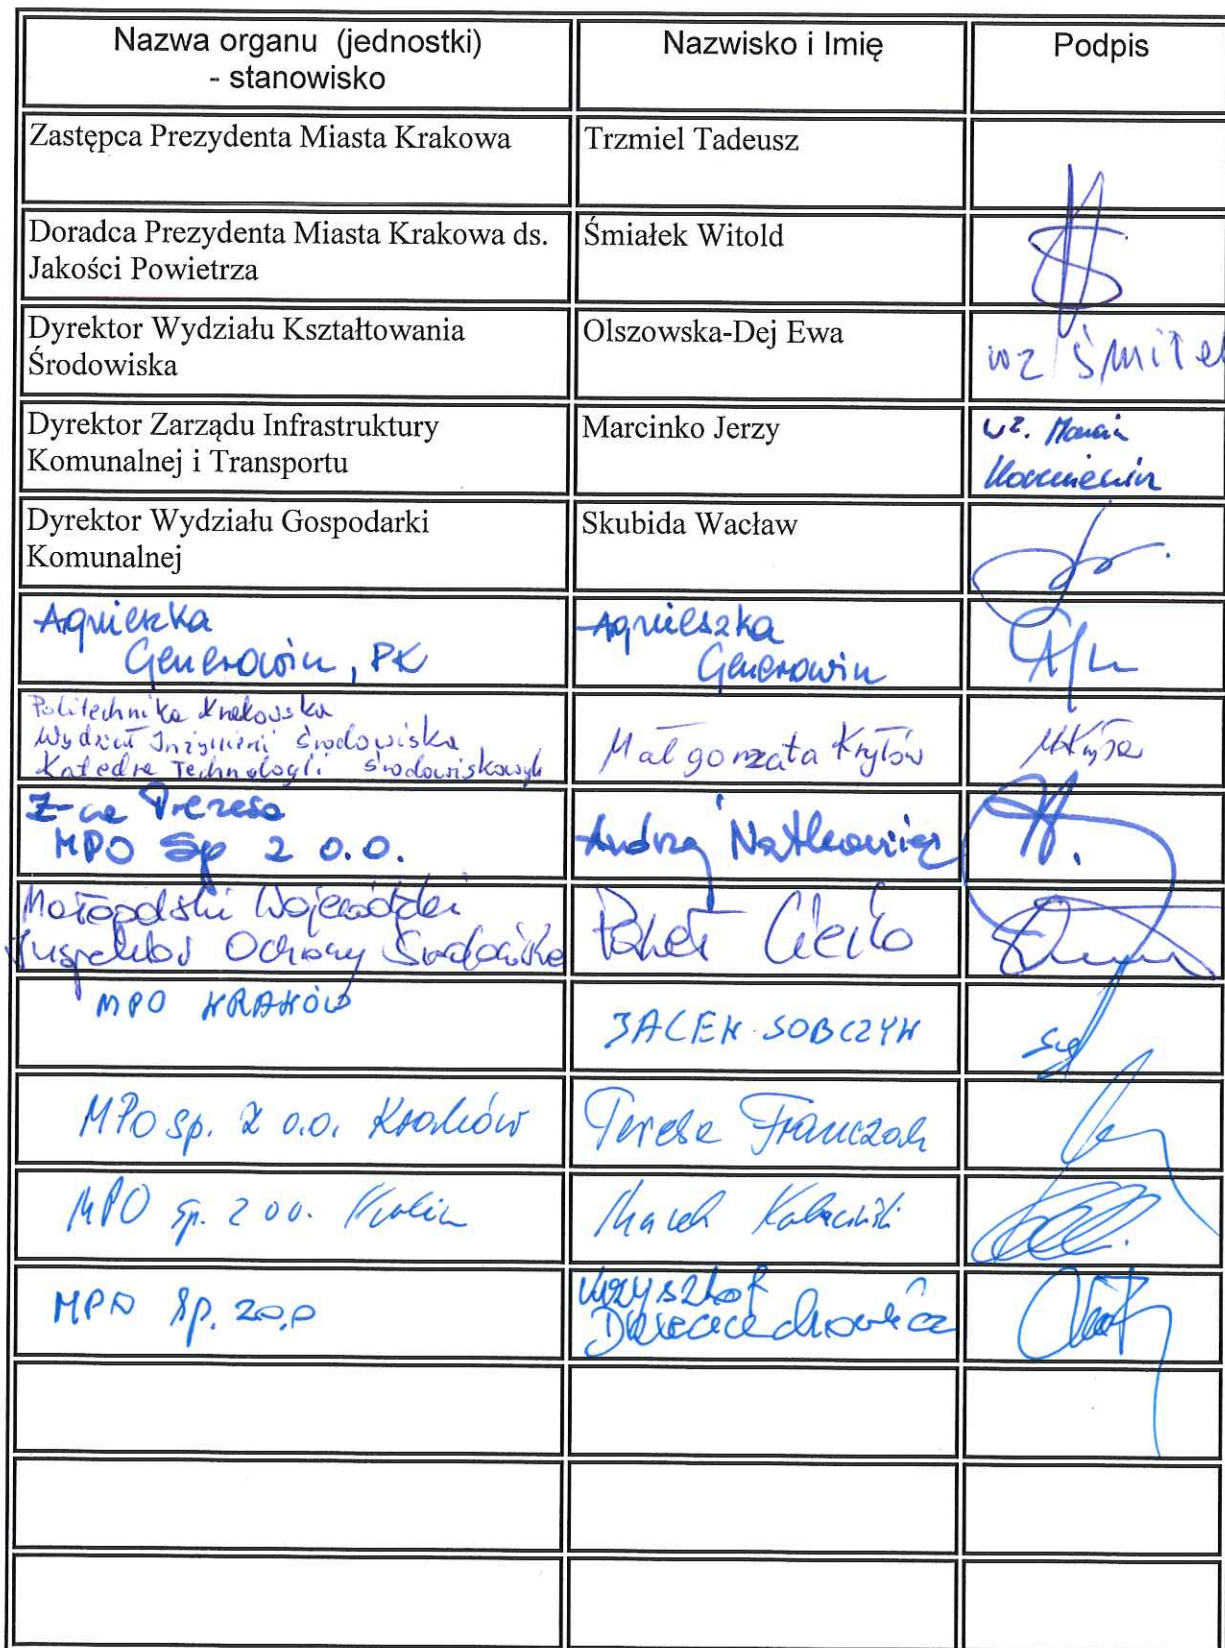 Nazwa organu (jednostki)
- stanowisko
Nazwisko i Imię
Podpis
Zastępca Prezydenta Miasta Krakowa
Trzmiel Tadeusz
Doradca Prezydenta Miasta Krakowa ds.
Jakości Powietrza
Śmiałek Witold
Dyrektor Wydziału Kształtowania
Środowiska
Olszowska-Dej Ewa
wz
Dyrektor Zarządu Infrastruktury
Komunalnej i Transportu
Marcinko Jerzy
wz. Marcin
Dyrektor Wydziału Gospodarki
Komunalnej
Skubida Wacław
Agnieszka
Generowicz, PK
Agnieszka
Generowicz
Politechnika Krakowska
Wydział Inżynierii Środowiska
Katedra Technologii Środowiskowych
Małgorzata Kryłów
Z-ca Prezesa
MPO Sp z o.o.
Andrzej Natkaniec
Małopolski Wojewódzki
Inspektor Ochrony Środowiska
Paweł Ciećko
MPO KRAKÓW
JACEK SOBCZYK
MPO sp. z o.o. Kraków
Teresa Franczak
MPO sp. z oo. Kraków
Marek Kabaciński
MPO Sp. zo.o
Krzysztof